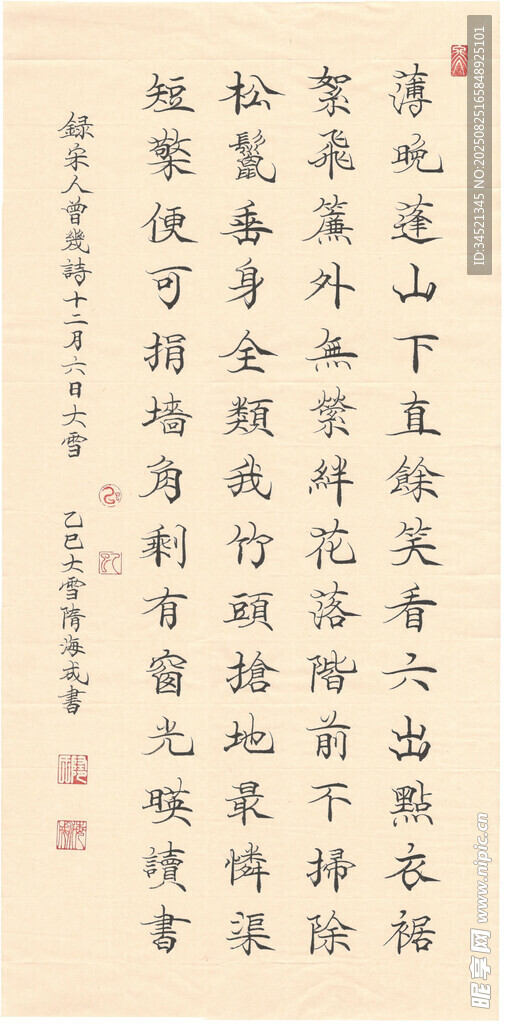 薄晚蓬山下直餘笑看六出點衣裾
絮飛簾外無縈絆花落階前不掃除
松鬣垂身全類我竹頭搶地最憐渠
短檠便可捐墻角剩有窗光暎讀書
録宋人曾幾詩十二月六日大雪
乙巳大雪隋海成書
ID:34521345 NO:20250825165848925101
昵享网 www.nipic.cn